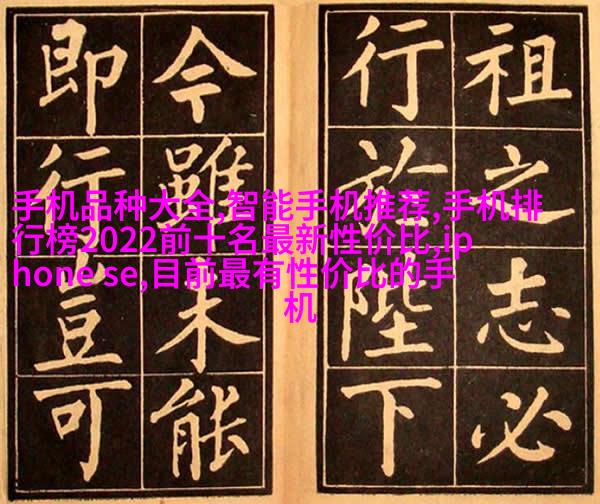 手机品种大全,智能手机推荐,手机排
行榜2022前十名最新性价比,ip
hone se,目前最有性价比的手
机
祖之志必
行於陛下
今雖未能
即行豈可